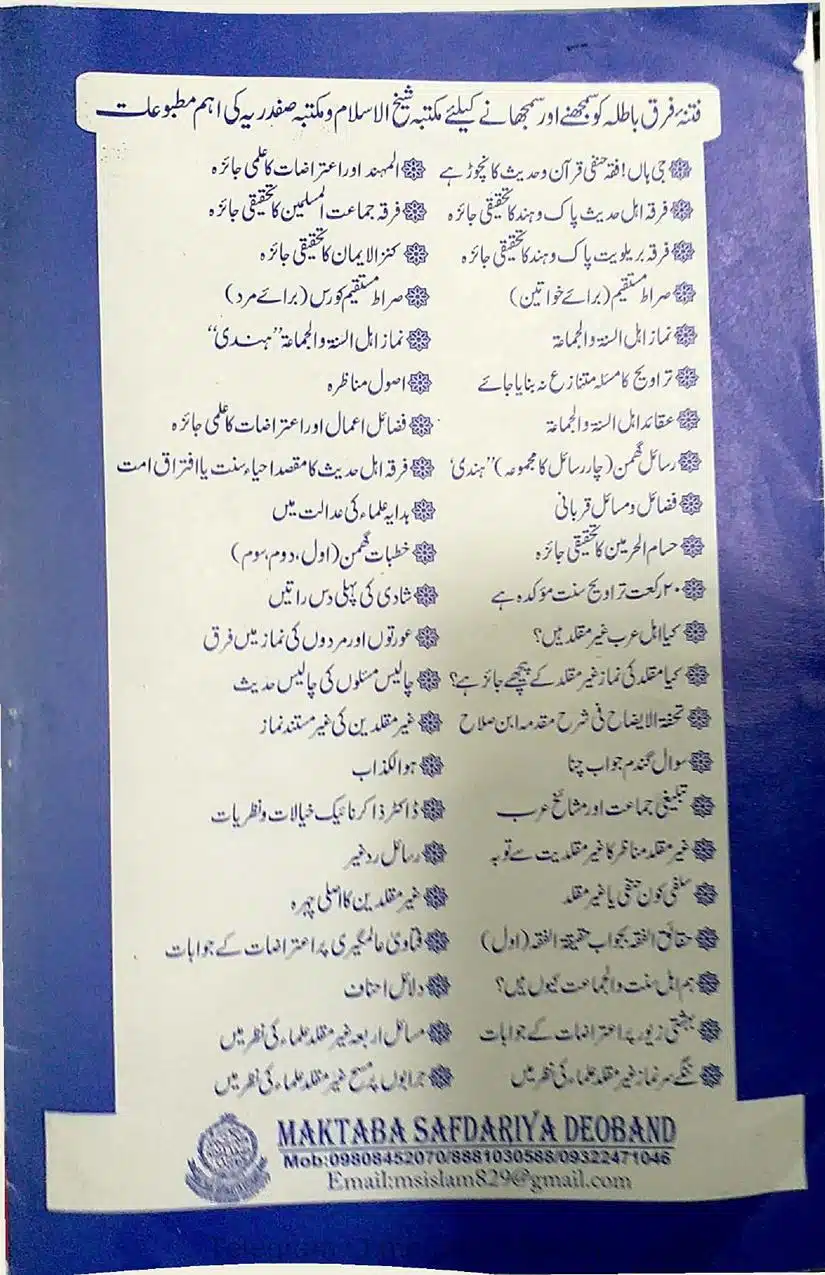 فتنۂ فرق باطلہ کو سمجھنے اور سمجھانے کیلئے مکتبہ شیخ الاسلام و مکتبہ صفدریہ کی اہم مطبوعات
جی ہاں! فقہ حنفی قرآن وحدیث کا نچوڑ ہے المہند اور اعتراضات کا علمی جائزہ
فرقہ اہل حدیث پاک و ہند کا تحقیقی جائزہ فرقہ جماعت المسلمین کا تحقیقی جائزہ
فرقہ بریلویت پاک و ہند کا تحقیقی جائزہ کنز الایمان کا تحقیقی جائزہ
صراط مستقیم (برائے خواتین) صراط مستقیم کورس (برائے مرد)
نماز اہل السنۃ والجماعۃ نماز اہل السنۃ والجماعۃ "ہندی"
تراویح کا مسئلہ متنازع نہ بنایا جائے اصول مناظرہ
عقائد اہل السنۃ والجماعۃ فضائل اعمال اور اعتراضات کا علمی جائزہ
رسائل گھمن (چار رسائل کا مجموعہ) "ہندی" فرقہ اہل حدیث کا مقصد احیاء سنت یا افتراق امت
فضائل ومسائل قربانی ہدایہ علماء کی عدالت میں
حسام الحرمین کا تحقیقی جائزہ خطبات گھمن (اول، دوم، سوم)
۲۰ رکعت تراویح سنت مؤکدہ ہے شادی کی پہلی دس راتیں
کیا اہل عرب غیر مقلد ہیں؟ عورتوں اور مردوں کی نماز میں فرق
کیا مقلد کی نماز غیر مقلد کے پیچھے جائز ہے؟ چالیس مسئلوں کی چالیس حدیث
تحفۃ الایضاح فی شرح مقدمہ ابن صلاح غیر مقلدین کی غیر مستند نماز
سوال گندم جواب چنا ہو الکذاب
تبلیغی جماعت اور مشائخ عرب ڈاکٹر ذاکر نائیک خیالات و نظریات
غیر مقلد مناظر کا غیر مقلدیت سے توبہ رسائل رد غیر
سلفی کون حنفی یا غیر مقلد غیر مقلدین کا اصلی چہرہ
حقائق الفقہ بجواب حقیقۃ الفقہ (اول) فتاویٰ عالمگیری پر اعتراضات کے جوابات
ہم اہل سنت والجماعت کیوں ہیں؟ دلائل احناف
بہشتی زیور پر اعتراضات کے جوابات مسائل اربعہ غیر مقلد علماء کی نظر میں
ننگے سر نماز غیر مقلد علماء کی نظر میں جرابوں پر مسح غیر مقلد علماء کی نظر میں
MAKTABA SAFDARIYA DEOBAND
Mob:09808452070/8881030588/09322471046
Email:msislam829@gmail.com